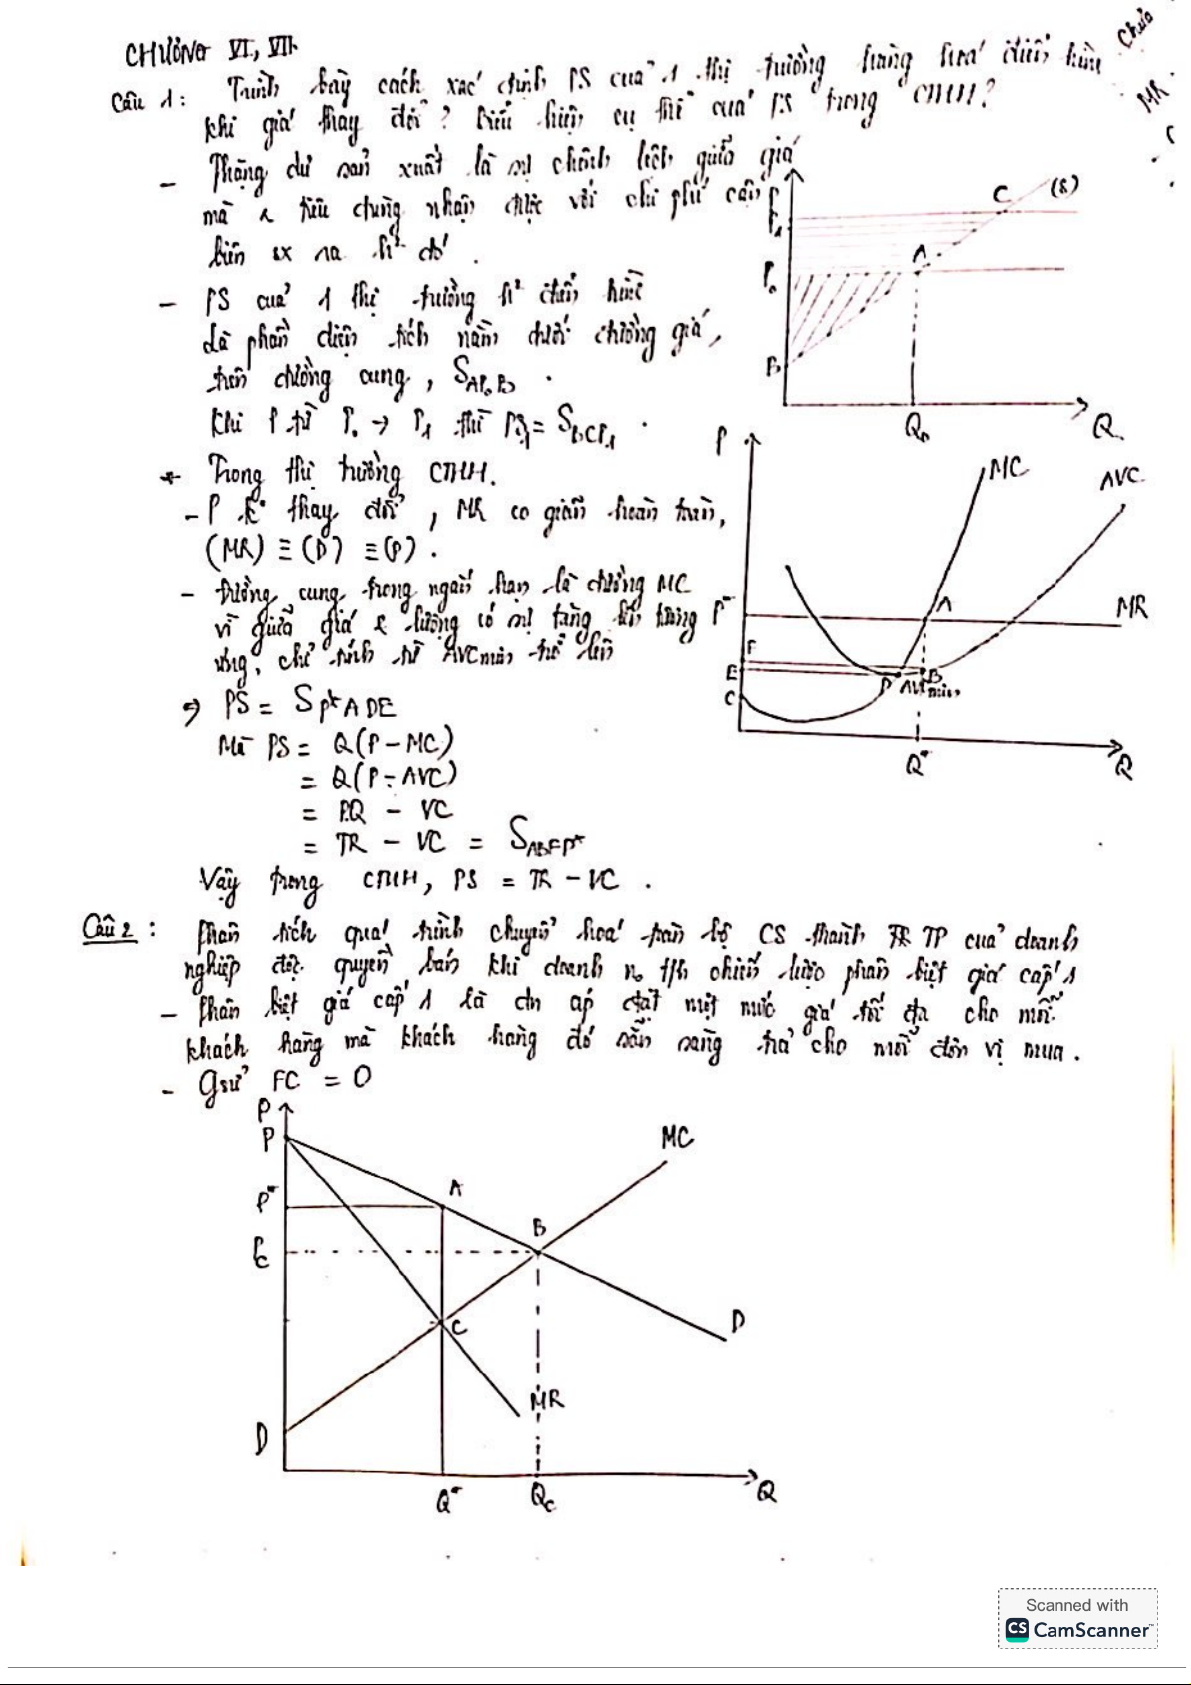 CHƯƠNG VI, VII
Câu 1: Trình bày cách xác định PS của 1 thị trường hàng hoá điển hình
khi giá thay đổi? Biểu hiện cụ thể của PS trong CTHH?
- Thặng dư sản xuất là sự chênh lệch giữa giá
mà n tiêu dùng nhận được với chi phí cận
biên sx ra h² đó.
- PS của 1 thị trường h² điển hình
là phần diện tích nằm dưới đường giá,
trên đường cung, S_AP₀B.
Khi P từ P₀ → P₁ thì PS₁ = S_BCP₁.
* Trong thị trường CTHH.
- P k° thay đổi, MR co giãn hoàn toàn,
(MR) ≡ (D) ≡ (P).
- Đường cung trong ngắn hạn là đường MC
vì giữa giá & lượng có sự tăng lên tương
ứng, chỉ tính từ AVCmin trở lên
=> PS = S_P*ADE
Mà PS = Q(P - MC)
= Q(P - AVC)
= P.Q - VC
= TR - VC = S_ABFP*
Vậy trong CTHH, PS = TR - VC.
P
P₁
P₀
B
A
C
(S)
Q₀
Q
P
MC
AVC
P*
A
MR
F
E
C
D
AVCmin
B
Q*
Q
Câu 2: Phân tích quá trình chuyển hoá toàn bộ CS thành TP của doanh
nghiệp độc quyền bán khi doanh n₀ t/h chiến lược phân biệt giá cấp 1
- Phân biệt giá cấp 1 là dn áp đặt một mức giá tối đa cho mỗi
khách hàng mà khách hàng đó sẵn sàng trả cho mỗi đơn vị mua.
- Gsử FC = 0
P
P
P*
Pc
D
A
B
C
MC
D
MR
Q*
Qc
Q
Scanned with
CS CamScanner